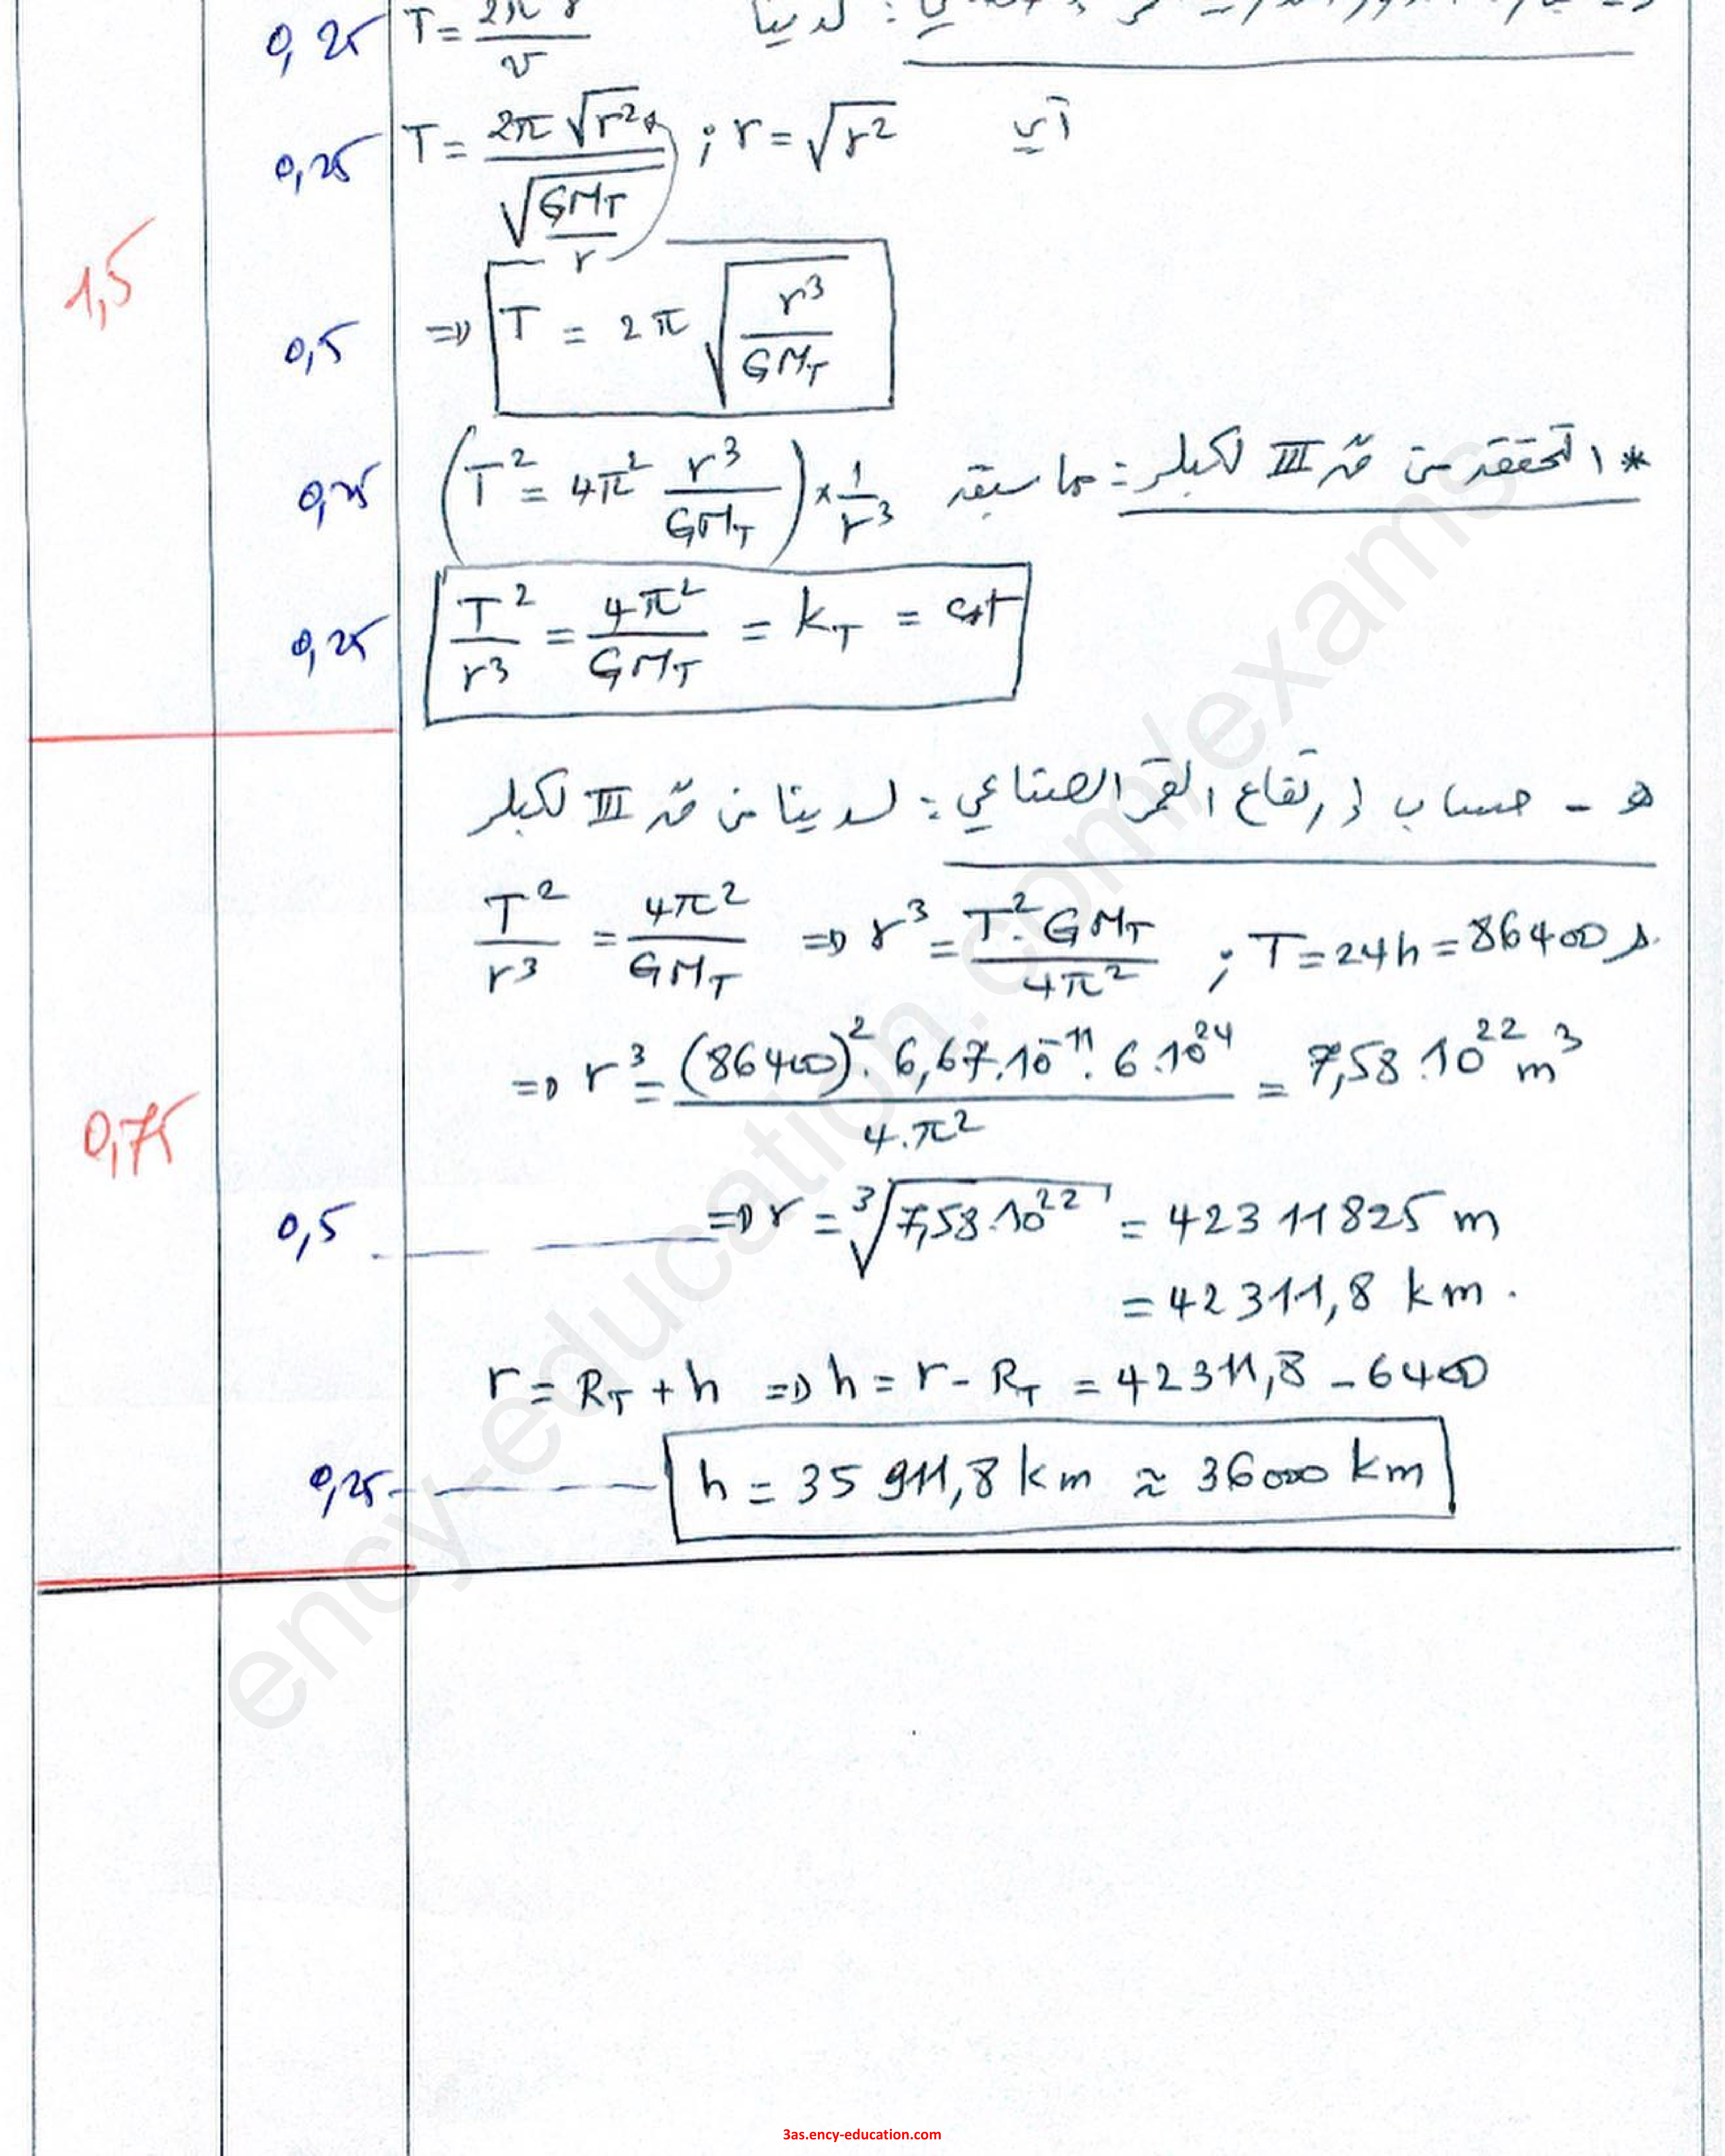 0,25 T = 2π r / v لدينا :
0,25 T = 2π √r² / √(GM_T / r) ; r = √r² أي
1,5
0,5 => T = 2π √(r³ / GM_T)
* التحقق من ق III لكبلر : مما سبق
0,25 (T² = 4π² r³ / GM_T) × 1/r³
0,25 T² / r³ = 4π² / GM_T = k_T = cst
ه - حساب إرتفاع القمر الصناعي : لدينا من ق III لكبلر
T² / r³ = 4π² / GM_T => r³ = T². GM_T / 4π² ; T = 24h = 86400 s.
=> r³ = (86400)². 6,67.10⁻¹¹. 6.10²⁴ / 4.π² = 7,58.10²² m³
0,75
0,5 => r = ³√7,58.10²² = 42311825 m
= 42311,8 km.
r = R_T + h => h = r - R_T = 42311,8 - 6400
0,25 h = 35911,8 km ≈ 36000 km
ency-education.com/exams
3as.ency-education.com